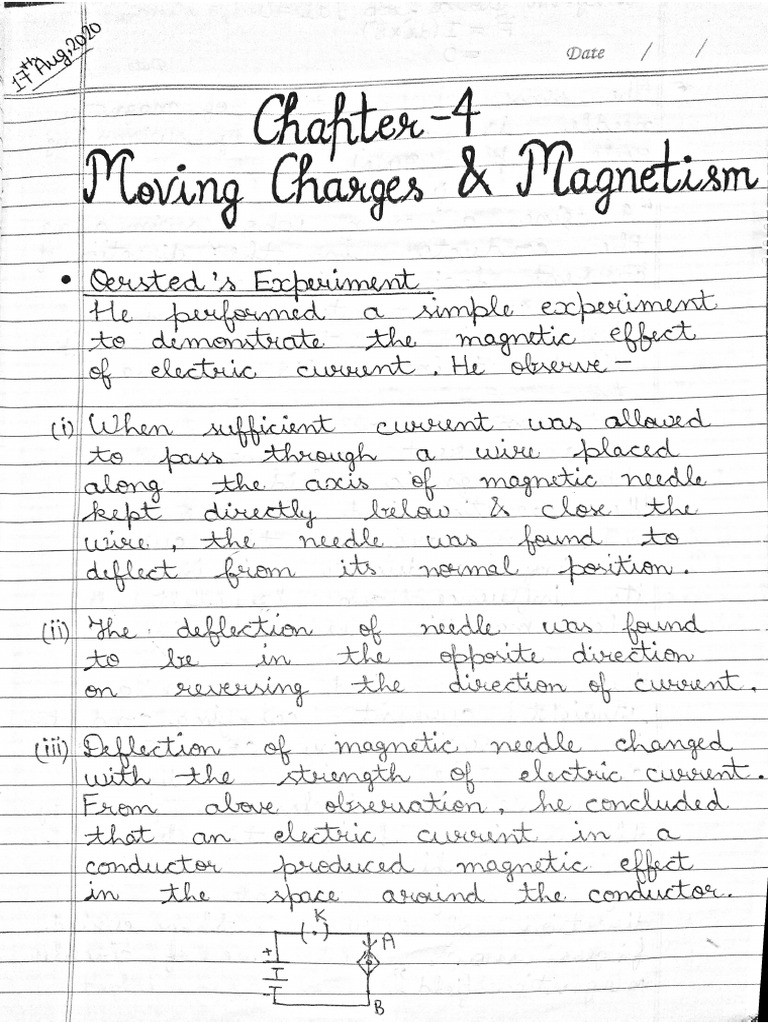 17th Aug, 2020
Date / /
Chapter-4
Moving Charges & Magnetism
• Oersted's Experiment
He performed a simple experiment
to demonstrate the magnetic effect
of electric current. He observe -
(i) When sufficient current was allowed
to pass through a wire placed
along the axis of magnetic needle
kept directly below & close the
wire, the needle was found to
deflect from its normal position.
(ii) The deflection of needle was found
to be in the opposite direction
on reversing the direction of current.
(iii) Deflection of magnetic needle changed
with the strength of electric current.
From above observation, he concluded
that an electric current in a
conductor produced magnetic effect
in the space around the conductor.
K
+ A
-
B